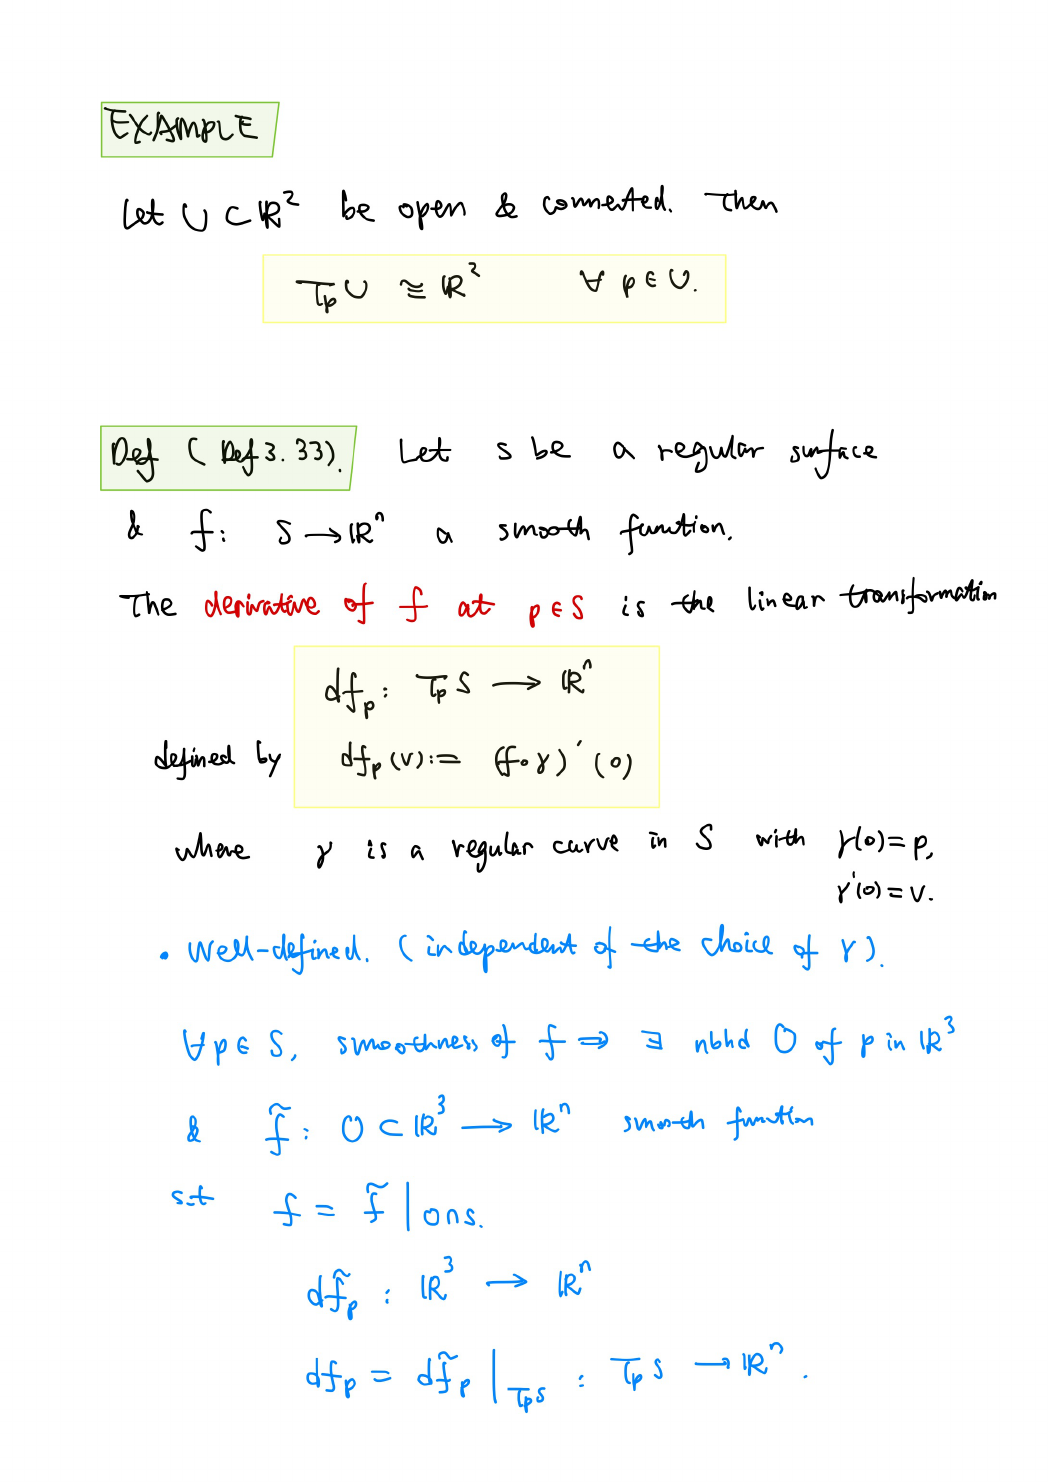 EXAMPLE
Let U ⊂ ℝ² be open & connected. Then
T_pU ≅ ℝ² ∀ p ∈ U.
Def (Def 3.33). Let S be a regular surface
& f: S → ℝⁿ a smooth function.
The derivative of f at p∈S is the linear transformation
df_p: T_pS → ℝⁿ
defined by df_p(v) := (f∘γ)′(0)
where γ is a regular curve in S with γ(0)=p,
γ′(0)=v.
• Well-defined. (independent of the choice of γ).
∀p∈S, smoothness of f ⇒ ∃ nbhd O of p in ℝ³
& f̃: O ⊂ ℝ³ → ℝⁿ smooth function
s.t f = f̃ |_{O∩S}.
df̃_p : ℝ³ → ℝⁿ
df_p = df̃_p |_{T_pS} : T_pS → ℝⁿ.